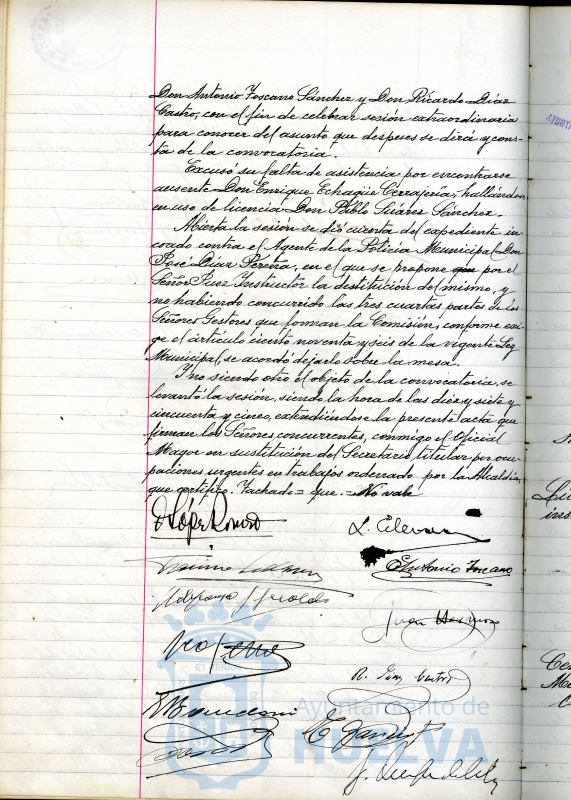 Don Antonio Toscano Sánchez y Don Ricardo Díaz
Castro, con el fin de celebrar sesión extraordinaria
para conocer del asunto que despues se dirá y cons-
ta de la convocatoria.
Excusó su falta de asistencia por encontrarse
ausente Don Enrique Echagüe Cerrajería, hallándose
en uso de licencia Don Pablo Suárez Sánchez.
Abierta la sesión se dió cuenta del expediente in
coado contra el Agente de la Policía Municipal Don
José Díaz Pereña, en el que se propone que por el
Señor Juez Instructor la destitución del mismo, y
no habiendo concurrido las tres cuartas partes de los
Señores Gestores que forman la Comisión, conforme exi-
ge el artículo ciento noventa y seis de la vigente Ley
Municipal, se acordó dejarlo sobre la mesa.
Y no siendo otro el objeto de la convocatoria, se
levantó la sesión, siendo la hora de las diez y siete y
cincuenta y cinco, extendiéndose la presente acta que
firman los Señores concurrentes, conmigo el Oficial
Mayor en sustitución del Secretario titular por ocu-
paciones urgentes en trabajos ordenado por la Alcaldía,
que certifico. Tachado = que. = No vale
Antonio Toscano
R. Díaz Castro
Ayuntamiento de
HUELVA